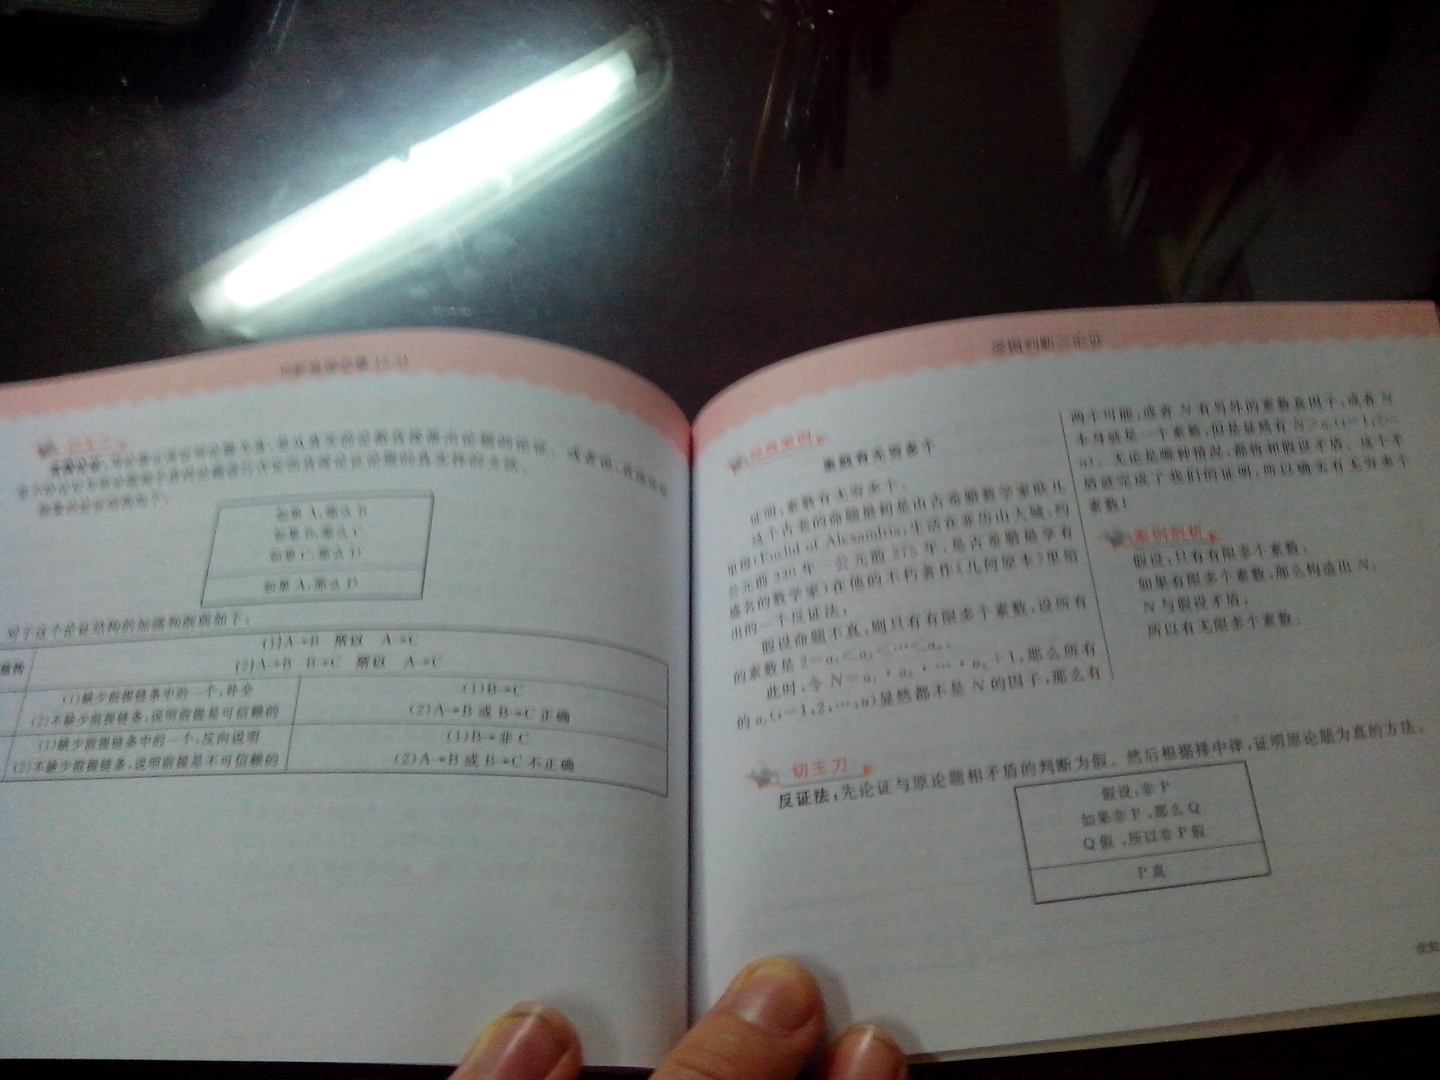 如果 A,那么 B
如果 B,那么 C
如果 C,那么 D
如果 A,那么 D
对于这个论证结构的加强和削弱如下:
结构
(1)A→B 所以 A→C
(2)A→B B→C 所以 A→C
(1)缺少前提链条中的一个,补全
(2)不缺少前提链条,说明前提是可信赖的
(1)B→C
(2)A→B 或 B→C 正确
(1)缺少前提链条中的一个,反向说明
(2)不缺少前提链条,说明前提是不可信赖的
(1)B→非 C
(2)A→B 或 B→C 不正确
逻辑判断之论证
经典案例
素数有无穷多个
证明:素数有无穷多个。
这个古老的命题最初是由古希腊数学家欧几
里得(Euclid of Alexandria,生活在亚历山大城,约
公元前 330 年—公元前 275 年,是古希腊最享有
盛名的数学家)在他的不朽著作《几何原本》里给
出的一个反证法:
假设命题不真,则只有有限多个素数,设所有
的素数是 2=a₁<a₂<…<aₙ.
此时,令 N=a₁·a₂·…·aₙ+1,那么所有
的 aᵢ(i=1,2,…,n)显然都不是 N 的因子,那么有
两个可能:或者 N 有另外的素数真因子,或者 N
本身就是一个素数,但是显然有 N>aᵢ(i=1,2…
n)。无论是哪种情况,都将和假设矛盾。这个矛
盾就完成了我们的证明,所以确实有无穷多个
素数!
案例剖析
假设:只有有限多个素数;
如果有限多个素数,那么构造出 N;
N 与假设矛盾;
所以有无限多个素数。
切玉刀
反证法:先论证与原论题相矛盾的判断为假。然后根据排中律,证明原论题为真的方法。
假设:非 P
如果非 P,那么 Q
Q 假,所以非 P 假
P 真